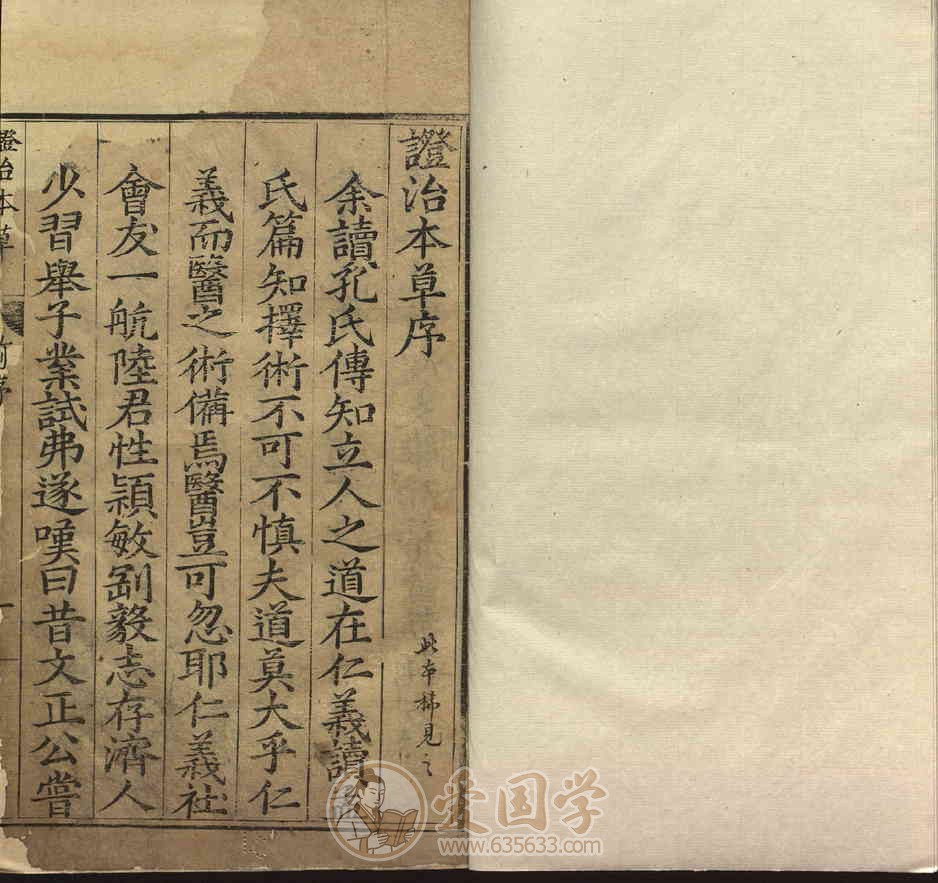 證治本草序
此本稀見之
余讀孔氏傳知立人之道在仁義讀孟
氏篇知擇術不可不慎夫道莫大乎仁
義而醫之術備焉醫豈可忽耶仁義社
會友一航陸君性穎敏剛毅志存濟人
少習舉子業試弗遂嘆曰昔文正公嘗
證治本草
前序
爱国学
www.635633.com